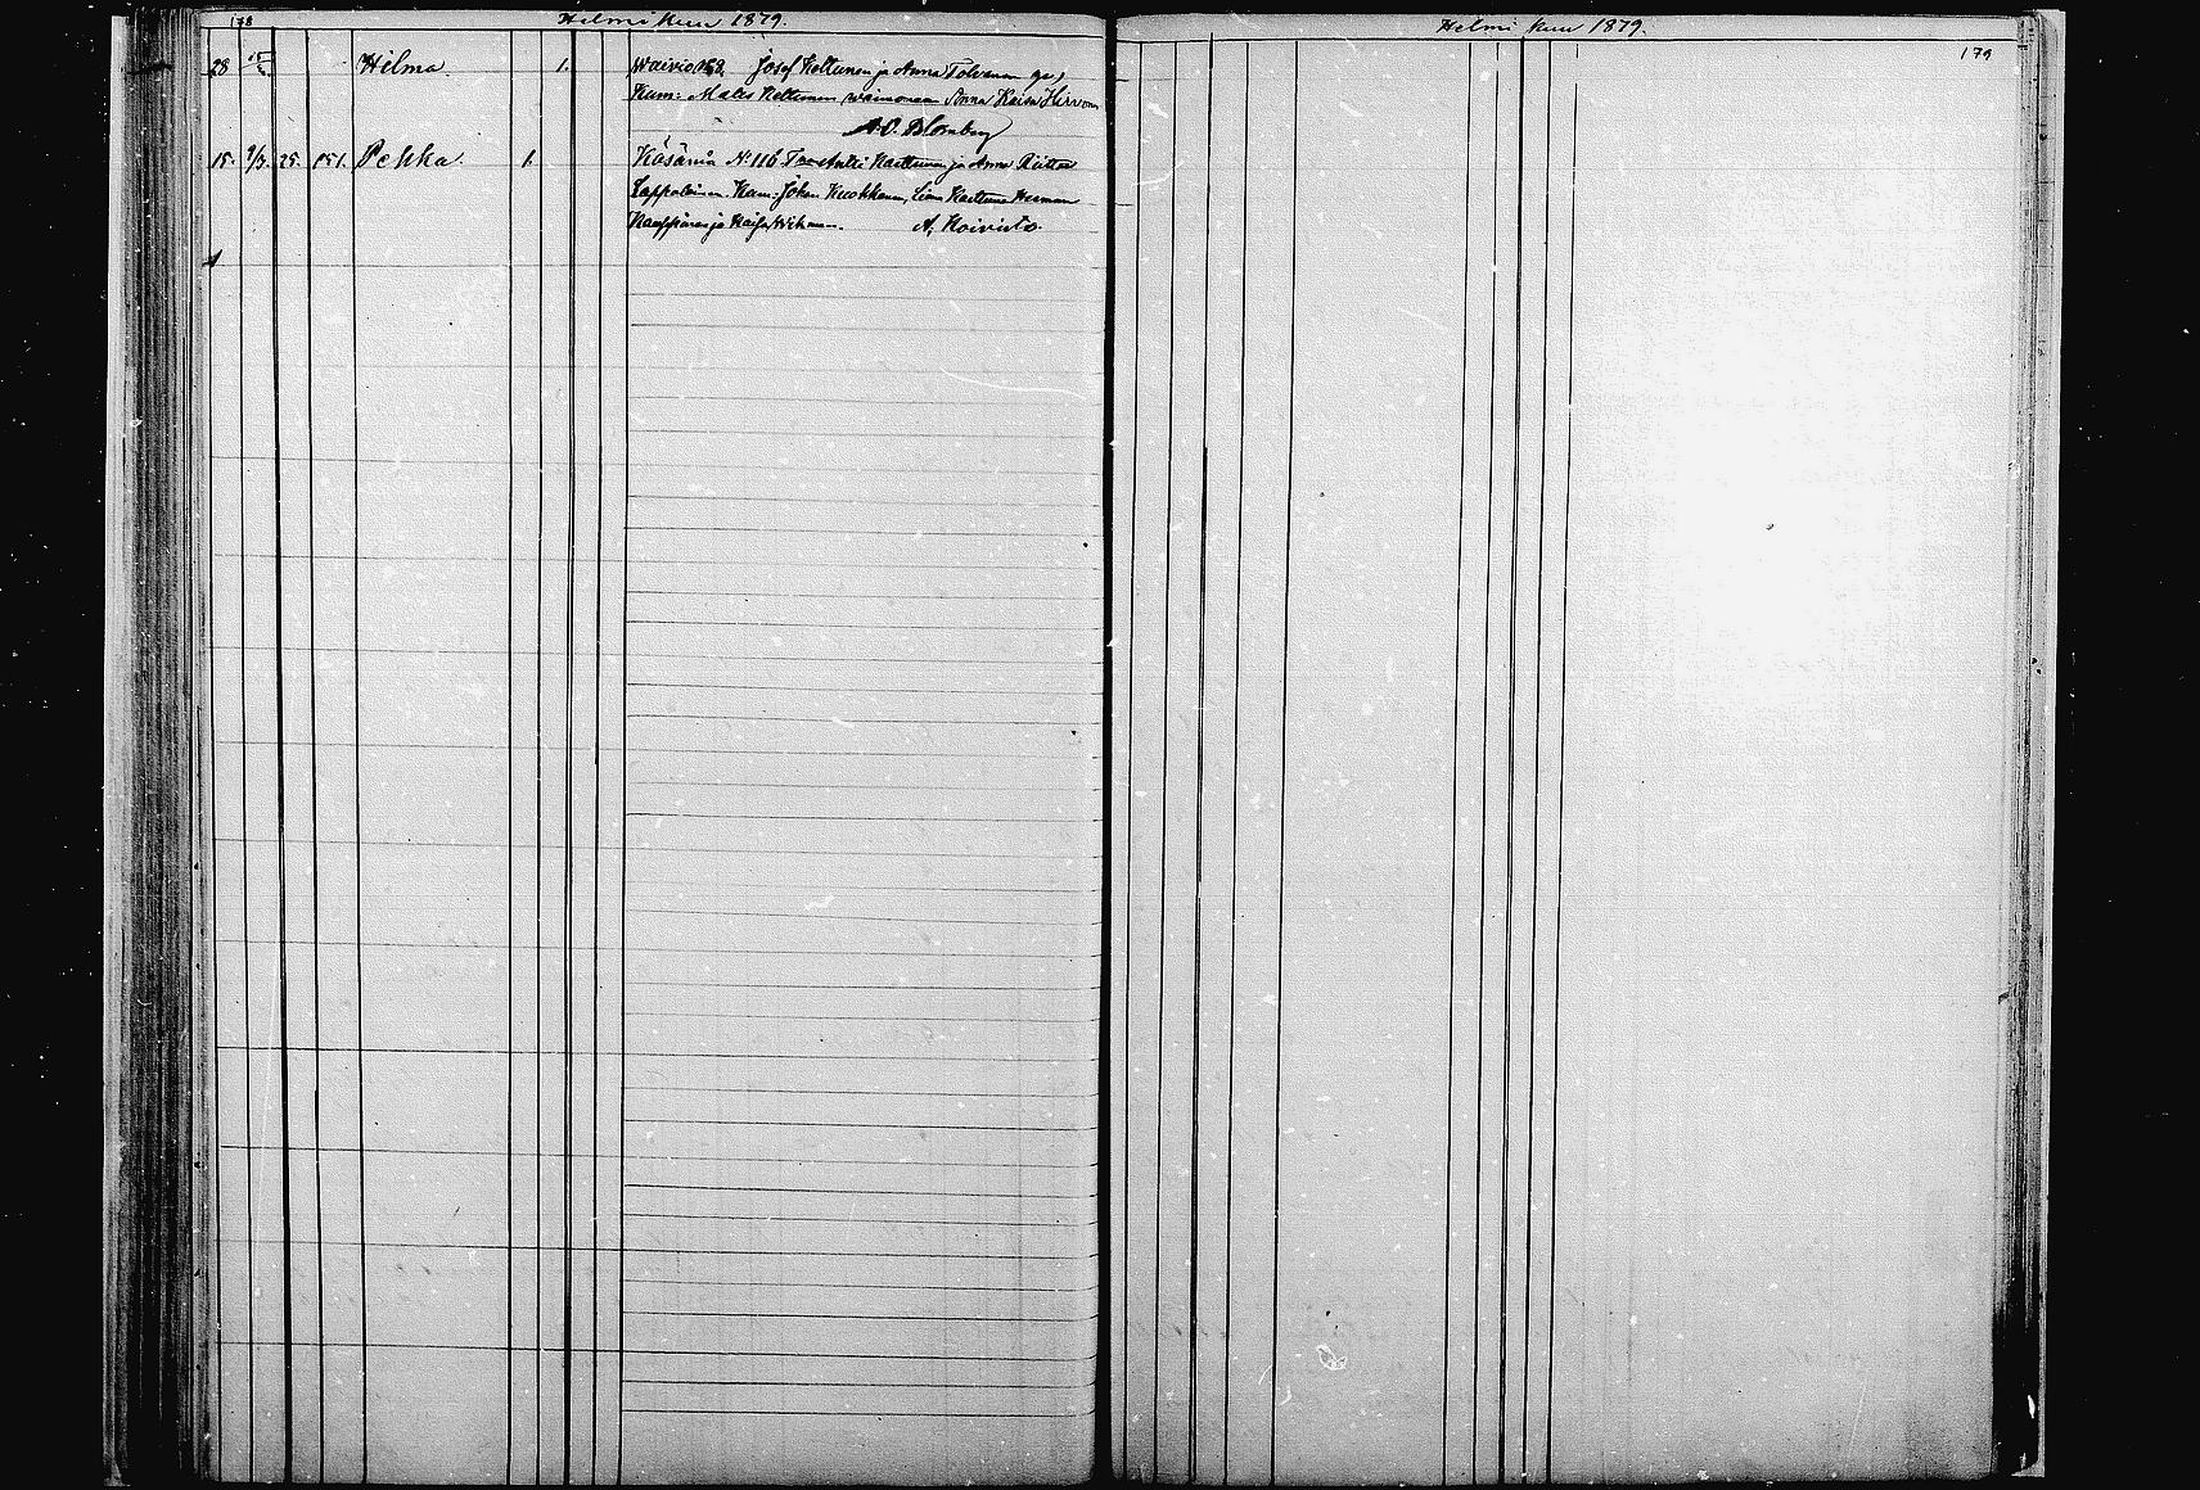 178 Helmi kuu 1879.
28 Hilma. 1. Waivio Josef Keltunen ja Anna Tolvanen
Kum: Mats Keltunen waimonen Anna Kaisa Hirvonen
A. O. Blomberg
15. 9/3. 25. 151. Pekka. 1. Käsämä No 116 Antti Karttunen ja Anna Riitta
Lappalainen. Kum: Johan Kuokkanen, Liena Karttunen Herman
Kauppinen ja Kaisa A. Koivisto.
Helmi kuu 1879.
179